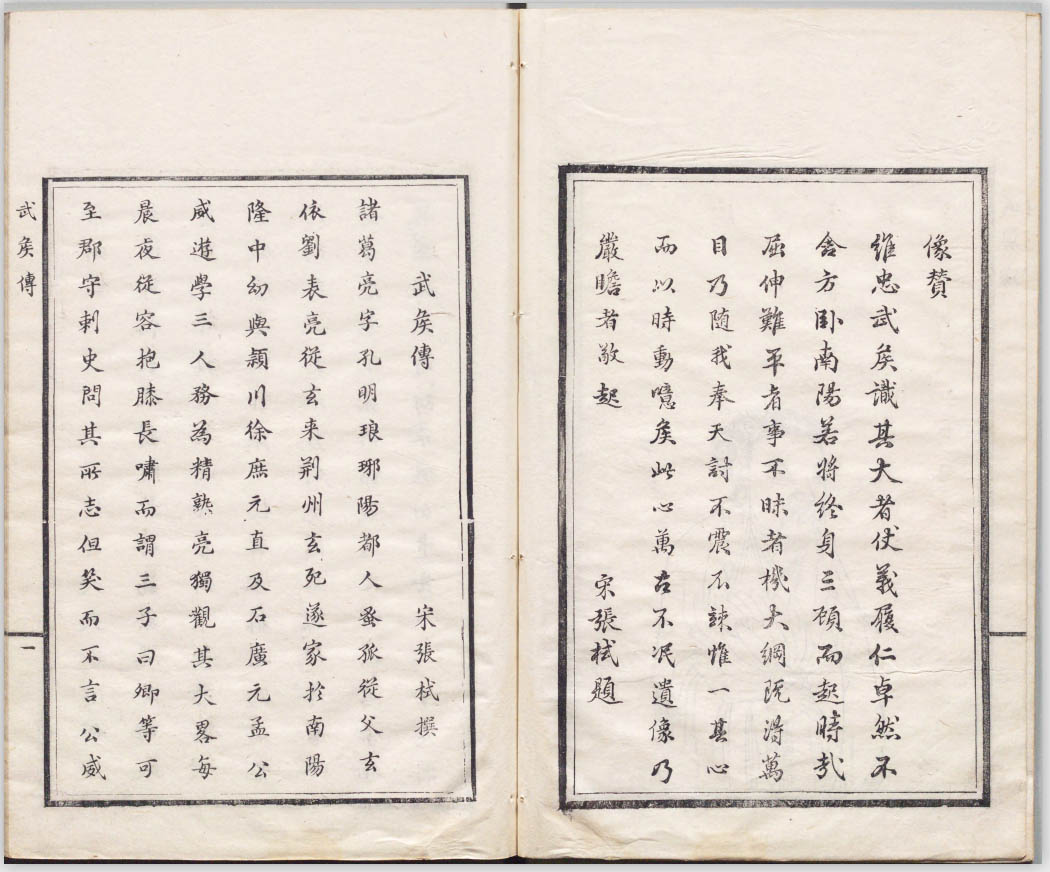 像贊
維忠武矦識其大者仗義履仁卓然不
舍方卧南陽若將終身三顧而起時哉
屈伸難平者事不昧者機大綱既得萬
目乃随我奉天討不震不竦惟一其心
而以時動噫矦此心萬古不泯遺像乃
嚴瞻者敬起
宋張栻題
武矦傳
宋張栻撰
諸葛亮字孔明琅琊陽都人蚤孤從父玄
依劉表亮從玄来荆州玄死遂家於南陽
隆中幼與潁川徐庶元直及石廣元孟公
威遊學三人務為精熟亮獨觀其大畧每
晨夜從容抱膝長嘯而謂三子曰卿等可
至郡守刺史問其所志但笑而不言公威
武矦傳
一